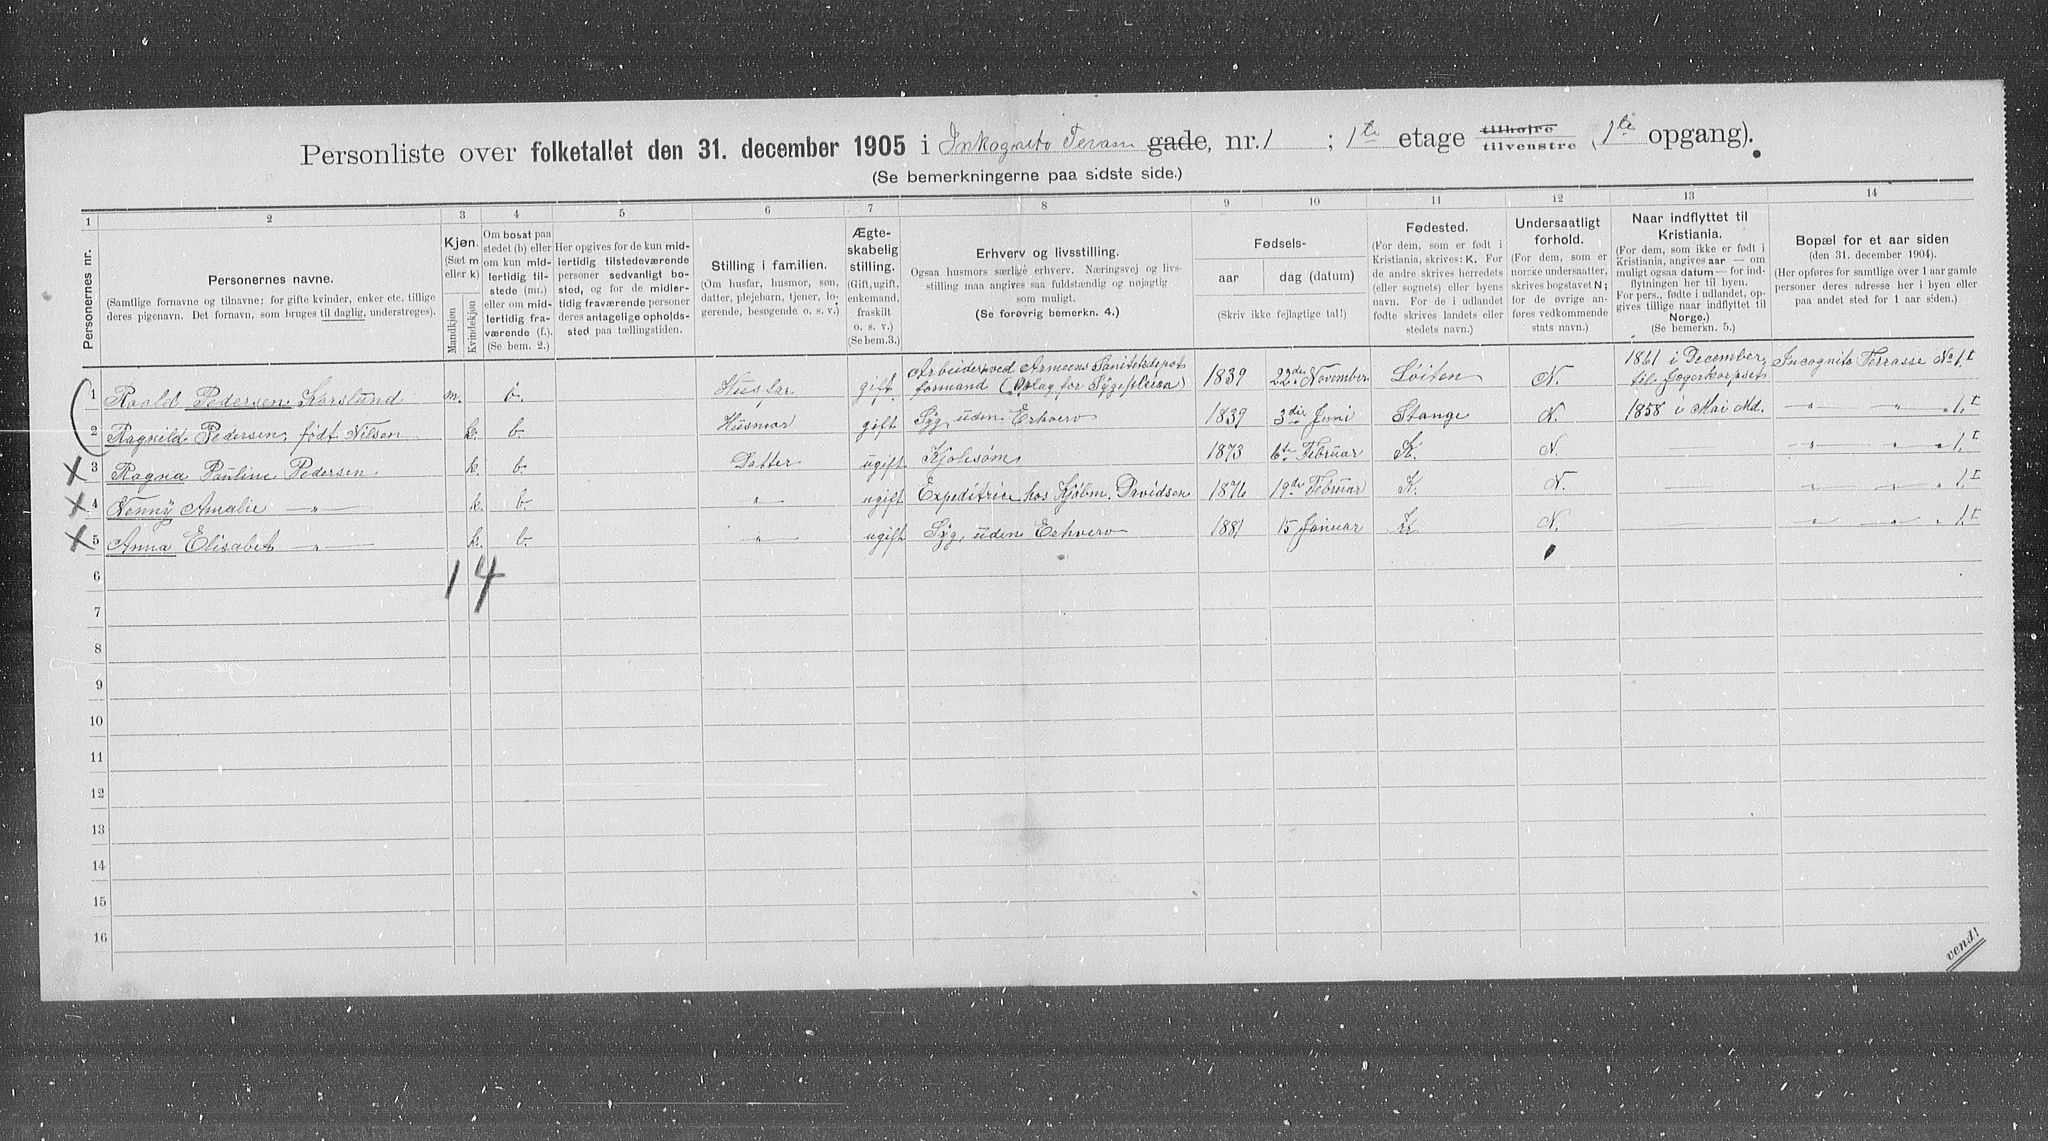 Personliste over folketallet den 31. december 1905 i Inkognito Terasse gade, nr. 1 ; 1te etage tilhøjre tilvenstre (1te opgang).
(Se bemerkningerne paa sidste side.)
1 2 3 4 5 6 7 8 9 10 11 12 13 14
Personernes nr.
Personernes navne.
(Samtlige fornavne og tilnavne; for gifte kvinder, enker etc. tillige
deres pigenavn. Det fornavn, som bruges til daglig, understreges).
Kjøn.
(Sæt m
eller k)
Mandkjøn
Kvindekjøn
Om bosat paa
stedet (b) eller
om kun mid-
lertidig til-
stede (mt.)
eller om mid-
lertidig fra-
værende (f.).
(Se bem. 2.)
Her opgives for de kun mid-
lertidig tilstedeværende
personer sedvanligt bo-
sted, og for de midler-
tidig fraværende personer
deres antagelige opholds-
sted paa tællingstiden.
Stilling i familien.
(Om husfar, husmor, søn,
datter, plejebarn, tjener, lo-
gerende, besøgende o. s. v.)
Ægte-
skabelig
stilling.
(Gift, ugift,
enkemand,
fraskilt
o. s. v.)
(Se bem. 3.)
Erhverv og livsstilling.
Ogsaa husmors særlige erhverv. Næringsvej og livs-
stilling maa angives saa fuldstændig og nøjagtig
som muligt.
(Se forøvrig bemerkn. 4.)
Fødsels-
aar
dag (datum)
(Skriv ikke fejlagtige tal!)
Fødested.
(For dem, som er født i
Kristiania, skrives: K. For
de andre skrives herredets
(eller sognets) eller byens
navn. For de i udlandet
fødte skrives landets eller
stedets navn.)
Undersaatligt
forhold.
(For dem, som er
norske undersaatter,
skrives bogstavet N;
for de øvrige an-
føres vedkommende
stats navn.)
Naar indflyttet til
Kristiania.
(For dem, som ikke er født i
Kristiania, angives aar — om
muligt ogsaa datum — for ind-
flytningen her til byen.
For pers., fødte i udlandet, op-
gives tillige naar indflyttet til
Norge.)
(Se bemerkn. 5.)
Bopæl for et aar siden
(den 31. december 1904).
(Her opføres for samtlige over 1 aar gamle
personer deres adresse her i byen eller
paa andet sted for 1 aar siden.)
1 Roald Pedersen Karslund m. b. Husfar gift Arbeider ved Armeens Sanitetsdepot formand (Oplag for Sygepleien) 1839 22de November Løiten N. 1861 i December til Jægerkorpset Incognito Terrasse No 1. I
2 Ragnild Pedersen, født Nilsen k. b. Husmor gift Syg, uden Erhverv 1839 3die Juni Stange N. 1858 i Mai Md. " " " 1. I
3 Ragna Pauline Pedersen k. b. Datter ugift Kjolesøm 1873 6te Februar K. N. " " " 1. I
4 Nenny Amalie " k. b. " ugift Expeditrice hos Kjøbm. Davidsen 1876 19de Februar K. N. — " " " 1. I
5 Anna Elisabet " k. b. " ugift Syg, uden Erhverv 1881 15 Januar K N. — " " " 1. I
6 1 4
7
8
9
10
11
12
13
14
15
16
vend!